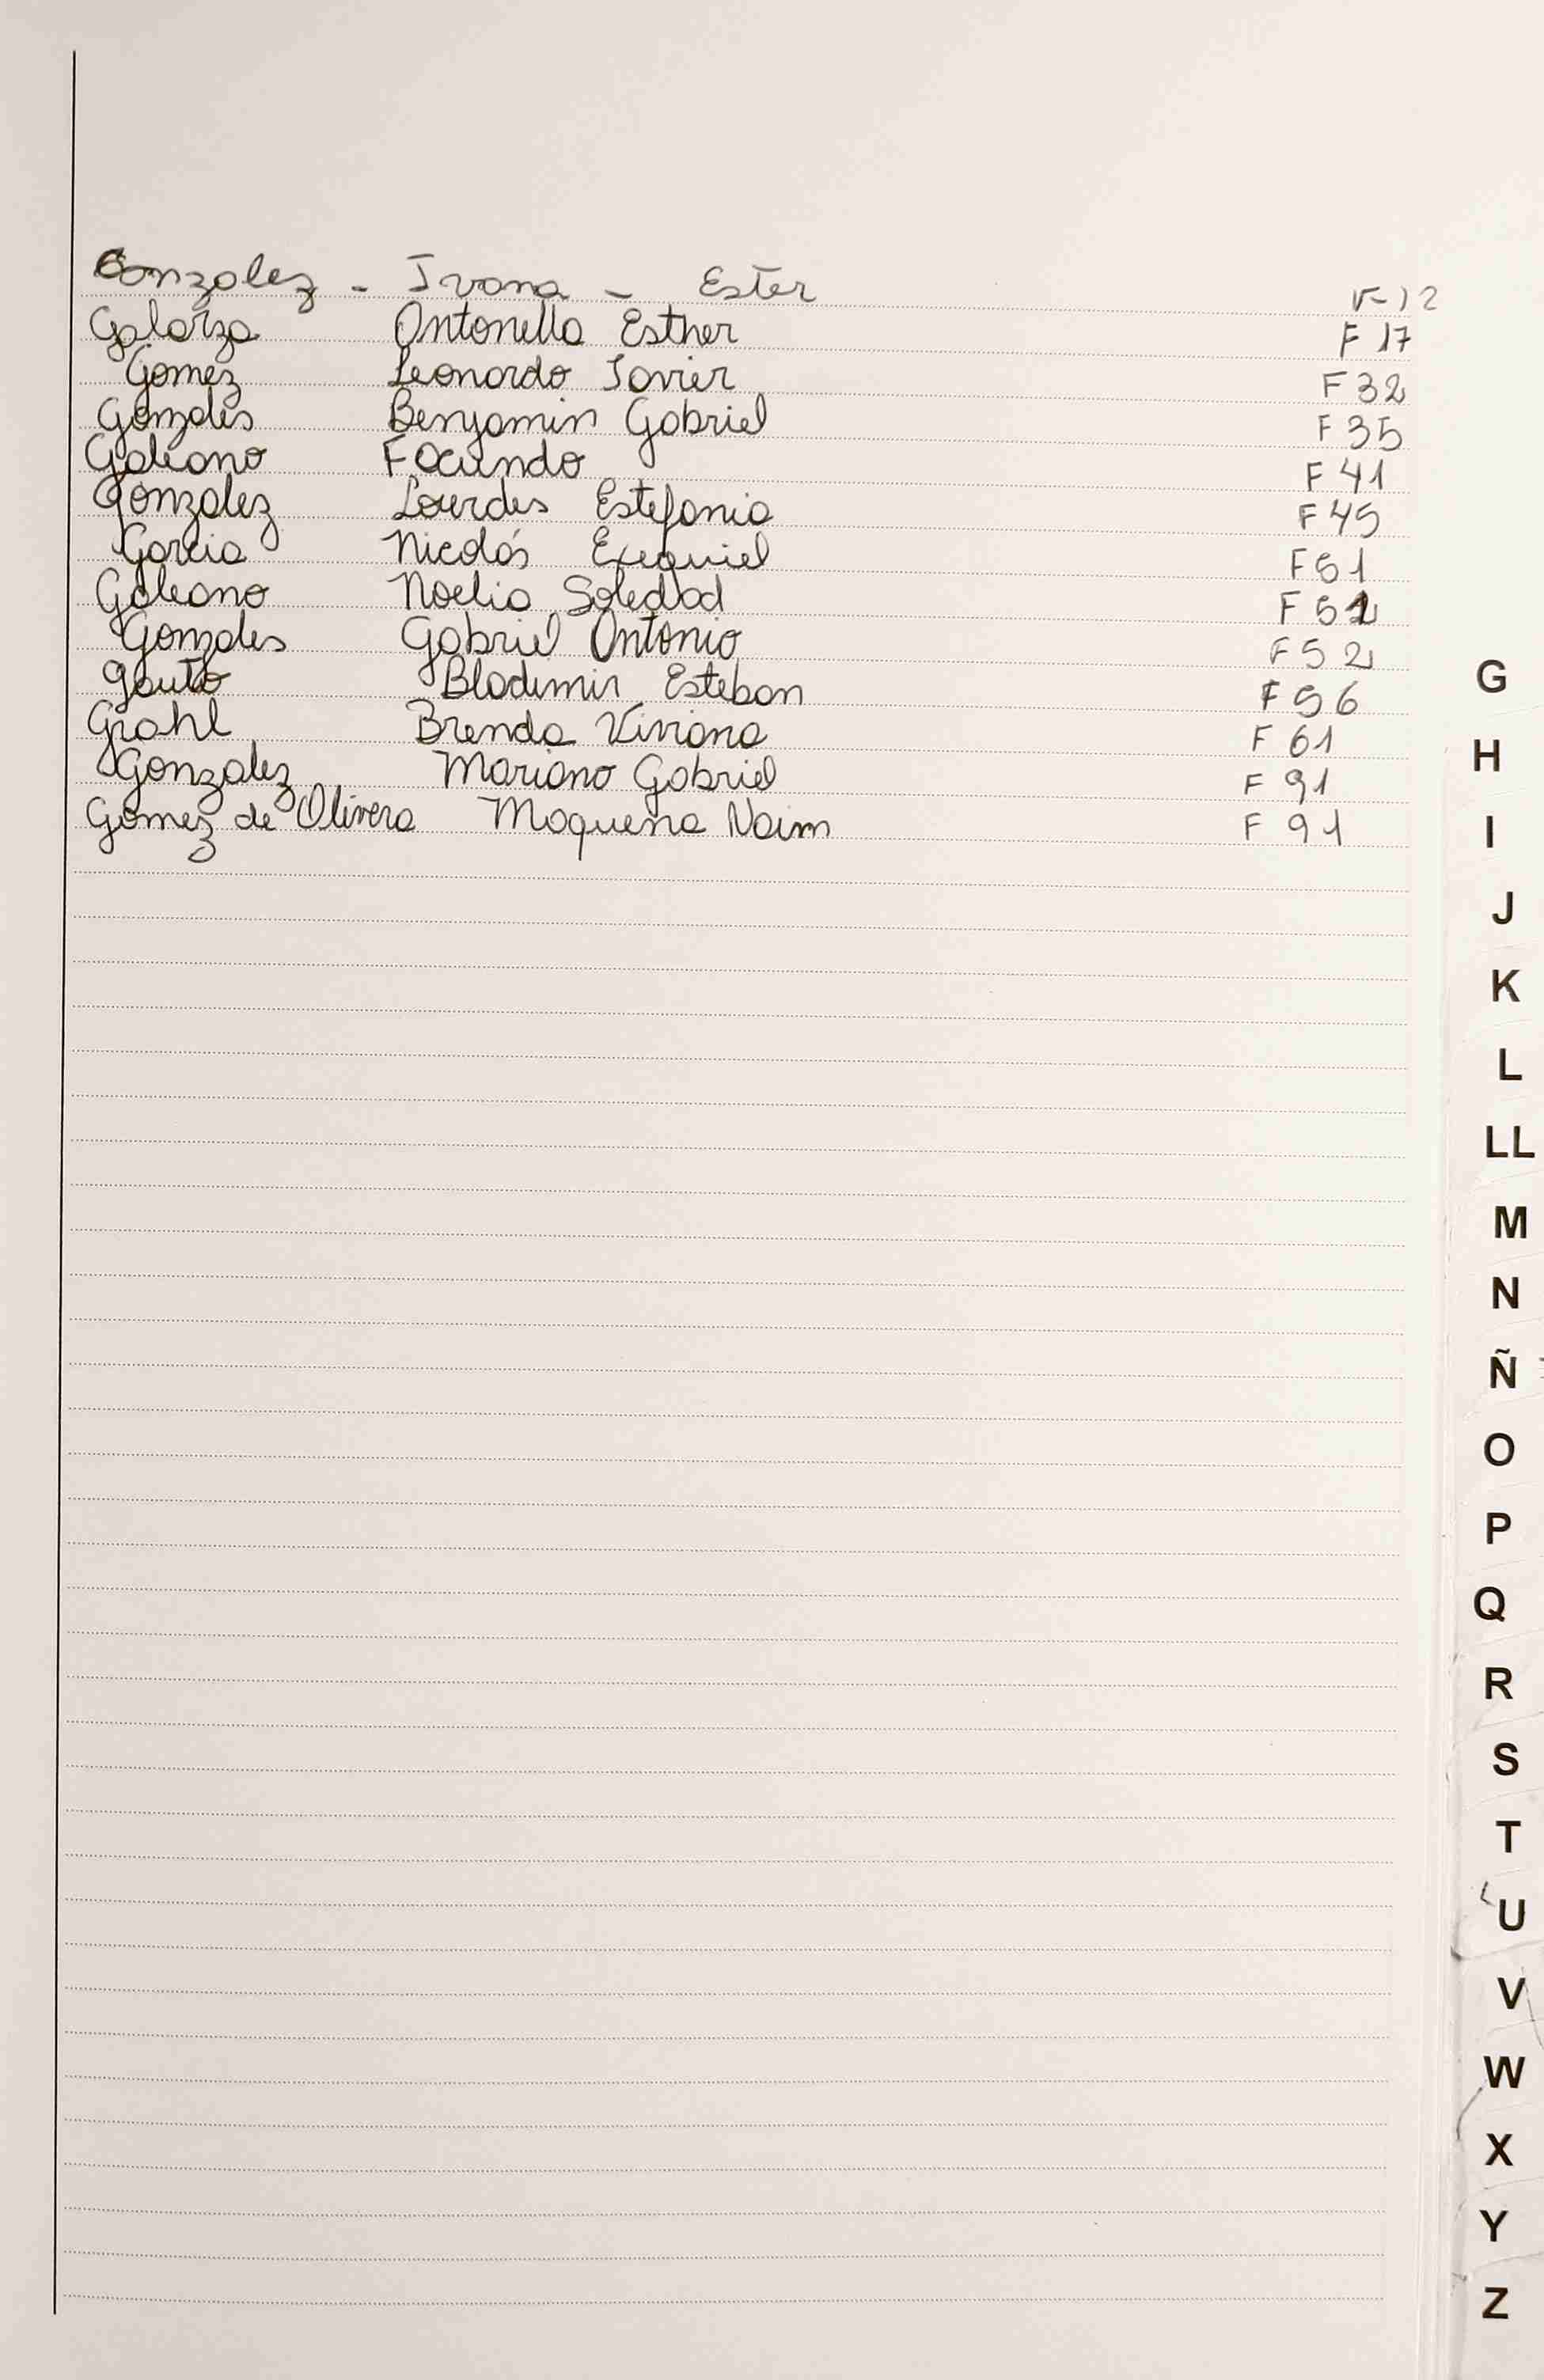 Gonzalez - Ivana - Ester F-12
Galarza Antonella Esther F 17
Gomez Leonardo Javier F 32
Gonzales Benjamin Gabriel F 35
Galeano Facundo F 41
Gonzalez Lourdes Estefania F 45
Garcia Nicolás Exequiel F 51
Galeano Noelia Soledad F 52
Gonzales Gabriel Antonio F 52
Gauto Bladimir Esteban F 56
Grahl Brenda Viviana F 61
Gonzalez Mariano Gabriel F 91
Gomez de Olivera Maquena Naim F 91
G
H
I
J
K
L
LL
M
N
Ñ
O
P
Q
R
S
T
U
V
W
X
Y
Z